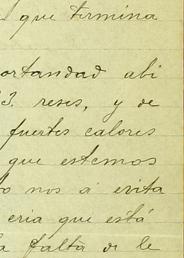 que termina
ortandad abi
3. reses, y de
fuertes calores
que estemos
o nos á evita
cria que está
a falta de le